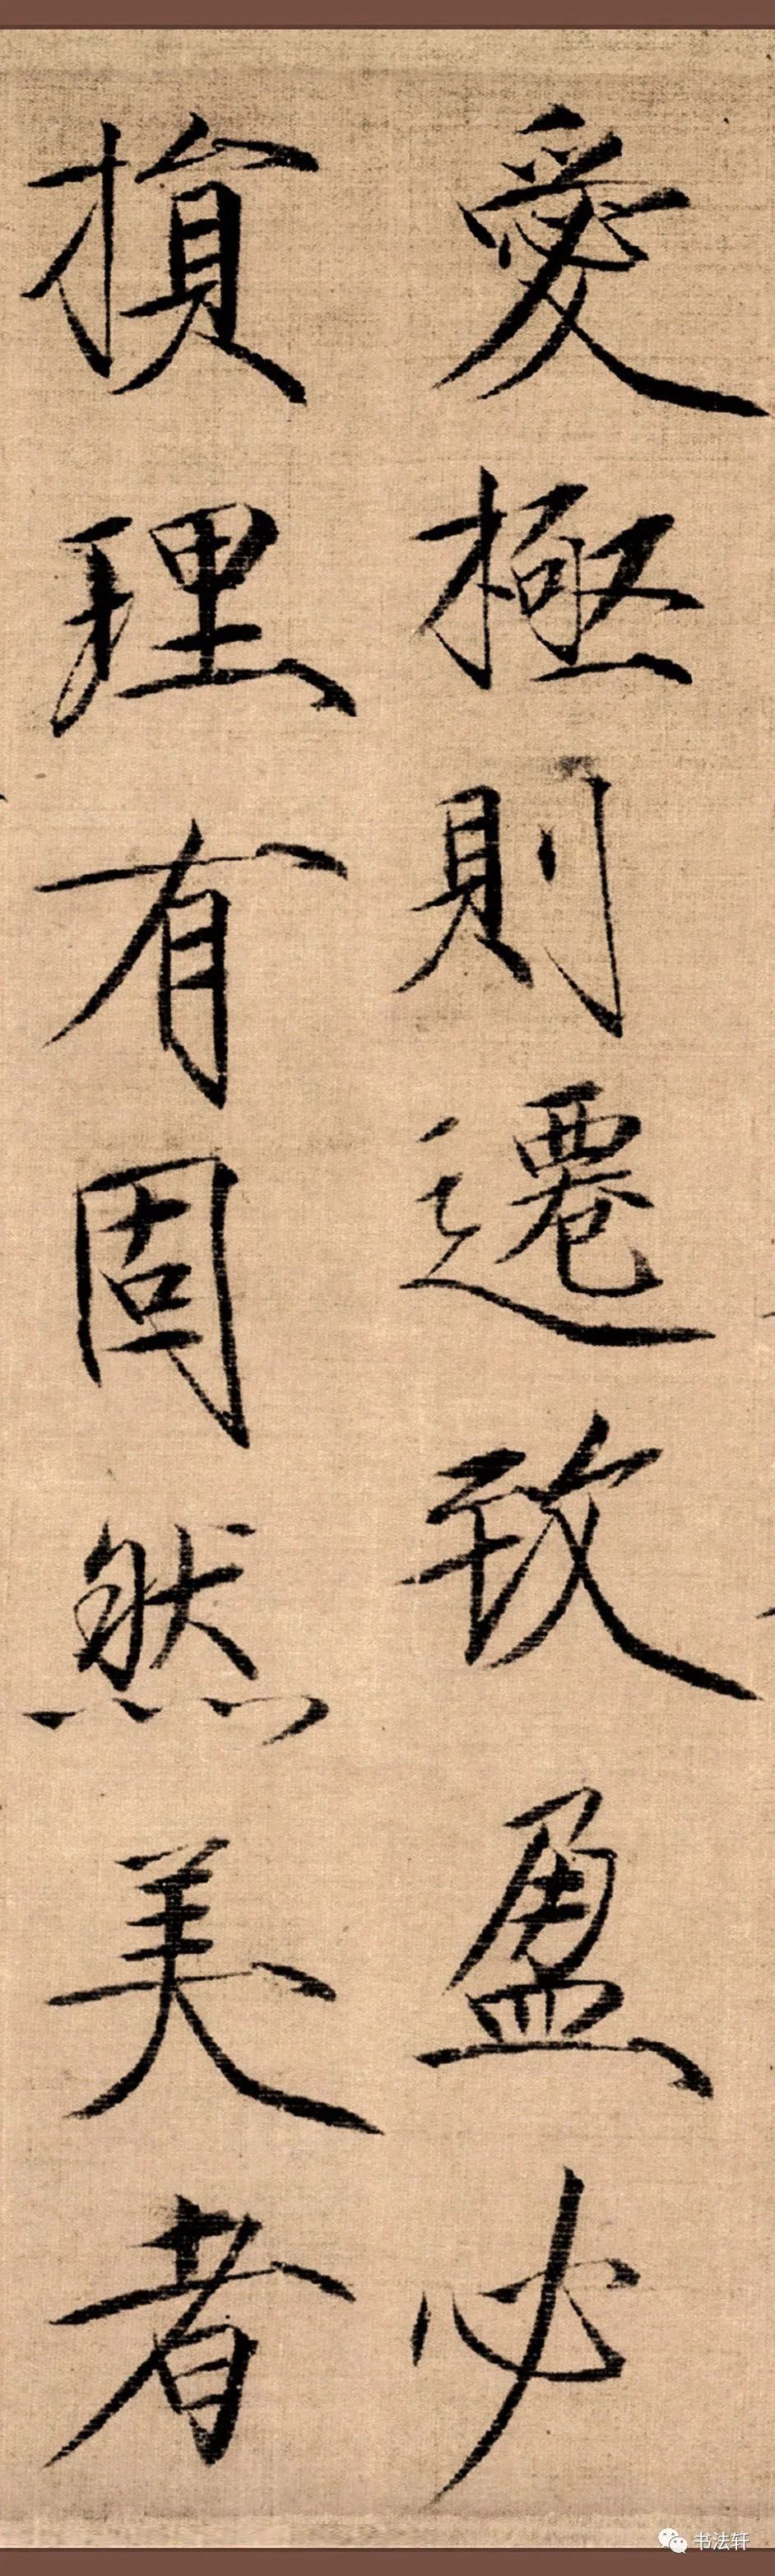 愛極則遷致盈必
損理有固然美者
书法轩